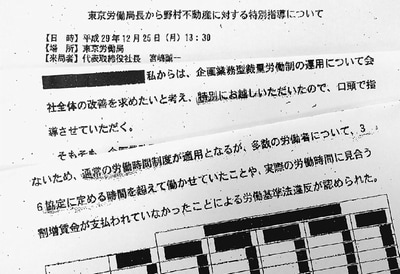 東京労働局長から野村不動産に対する特別指導について
【日 時】平成29年12月25日（月）13：30
【場 所】東京労働局
【来局者】代表取締役社長 宮嶋誠一
私からは、企画業務型裁量労働制の運用について会
社全体の改善を求めたいと考え、特別にお越しいただいたので、口頭で指
導させていただく。
そもそも、企画
ないため、通常の労働時間制度が適用となるが、多数の労働者について、3
6協定に定める時間を超えて働かせていたことや、実際の労働時間に見合う
割増賃金が支払われていなかったことによる労働基準法違反が認められた。